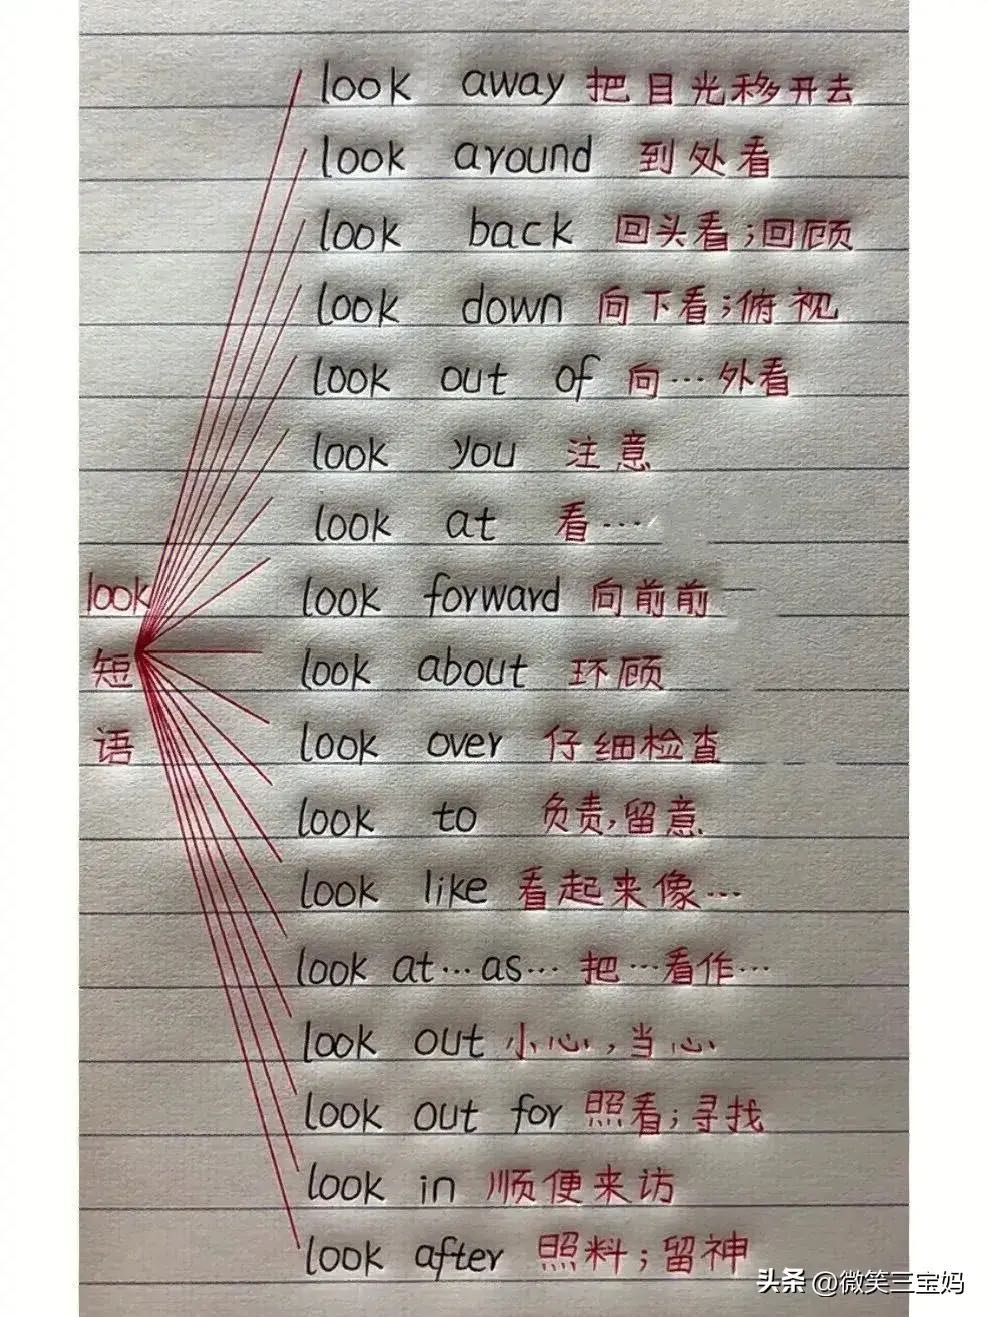 look away 把目光移开去
look around 到处看
look back 回头看;回顾
look down 向下看;俯视
look out of 向…外看
look you 注意
look at 看…
look forward 向前前
look about 环顾
look over 仔细检查
look to 负责,留意.
look like 看起来像…
look at…as… 把…看作…
look out 小心,当心
look out for 照看;寻找
look in 顺便来访
look after 照料;留神
look
短
语
头条 @微笑三宝妈